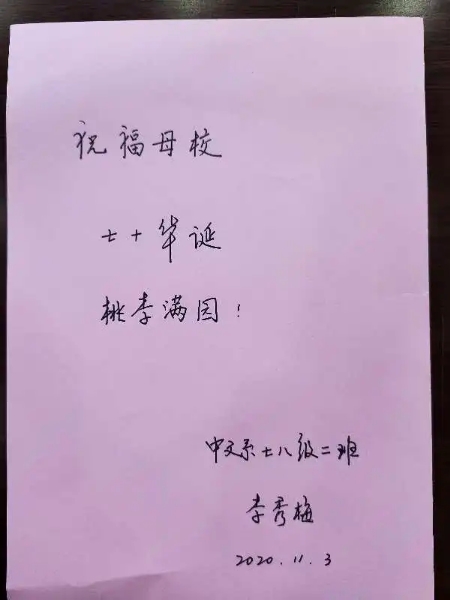 祝福母校
七十华诞
桃李满园！
中文系七八级二班
李秀梅
2020.11.3